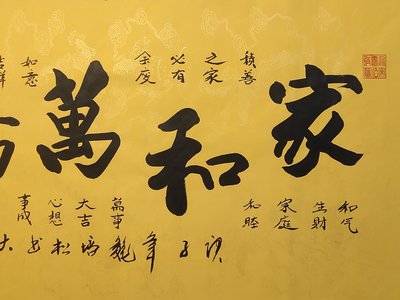 家和萬
積善
之家
必有
余慶
如意
吉祥
和气
生財
家庭
和睦
萬事
大吉
心想
事成
子年